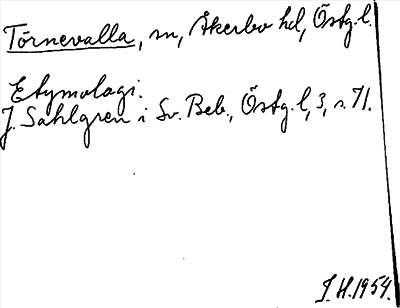 Törnevalla, sn, Åkerbo hd, Östg. l.
Etymologi.
J. Sahlgren i Sv. Beb., Östg. l, 3, s. 71.
J. H. 1954.